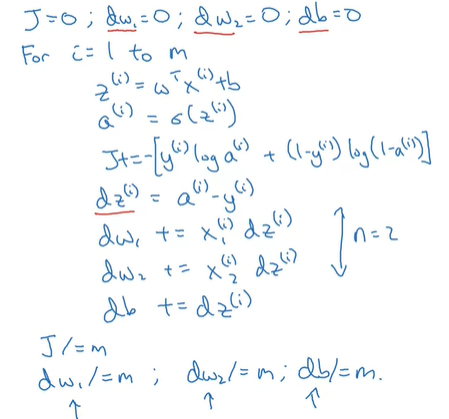 J=0; dw₁=0; dw₂=0; db=0
For i=1 to m
z⁽ⁱ⁾=ωᵀx⁽ⁱ⁾+b
a⁽ⁱ⁾=σ(z⁽ⁱ⁾)
J+=-[y⁽ⁱ⁾ log a⁽ⁱ⁾ + (1-y⁽ⁱ⁾) log(1-a⁽ⁱ⁾)]
dz⁽ⁱ⁾ = a⁽ⁱ⁾-y⁽ⁱ⁾
dw₁ += x₁⁽ⁱ⁾ dz⁽ⁱ⁾
dw₂ += x₂⁽ⁱ⁾ dz⁽ⁱ⁾
n=2
db += dz⁽ⁱ⁾
J/=m
dw₁/=m; dw₂/=m; db/=m.